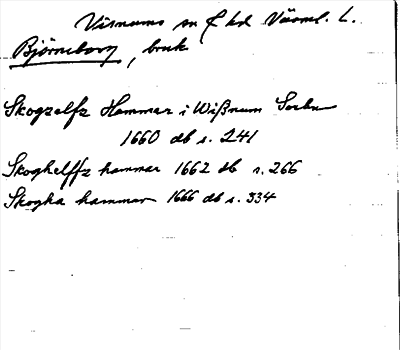 Visnums sn f hd Värml. L.
Björneborg, bruk
Skogzelfz Hammar i Wißnum Sochn
1660 db s. 241
Skoghelffz hammar 1662 db s. 266
Skogha hammar 1666 db s. 334